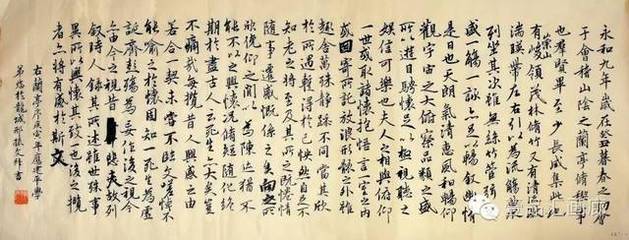 永和九年歲在癸丑暮春之初會
于會稽山陰之蘭亭脩禊事
也羣賢畢至少長咸集此地
有崇山峻領茂林脩竹又有清流激
湍暎帶左右引以為流觴曲水
列坐其次雖無絲竹管弦之
盛一觴一詠亦足以暢叙幽情
是日也天朗氣清惠風和暢仰
觀宇宙之大俯察品類之盛
所以遊目騁懷足以極視聽之
娛信可樂也夫人之相與俯仰
一世或取諸懷抱悟言一室之內
或因寄所託放浪形骸之外雖
趣舍萬殊靜躁不同當其欣
於所遇暫得於己怏然自足不
知老之將至及其所之既惓情
隨事遷感慨係之矣向之所
欣俛仰之閒以為陳迹猶不
能不以之興懷況脩短隨化終
期於盡古人云死生亦大矣豈
不痛哉每攬昔人興感之由
若合一契未嘗不臨文嗟悼不
能喻之於懷固知一死生為虛
誕齊彭殤為妄作後之視今
亦由今之視昔悲夫故列
敘時人錄其所述雖世殊事
異所以興懷其致一也後之攬
者亦將有感於斯文
右蘭亭序庚寅年應建平學
於龍城邢振文拜書